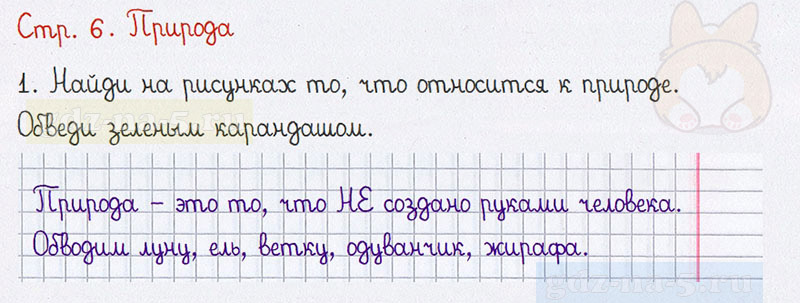 Стр. 6. Природа
1. Найди на рисунках то, что относится к природе.
Обведи зеленым карандашом.
Природа – это то, что НЕ создано руками человека.
Обводим луну, ель, ветку, одуванчик, жирафа.
gdz-na-5.ru
gdz-na-5.ru